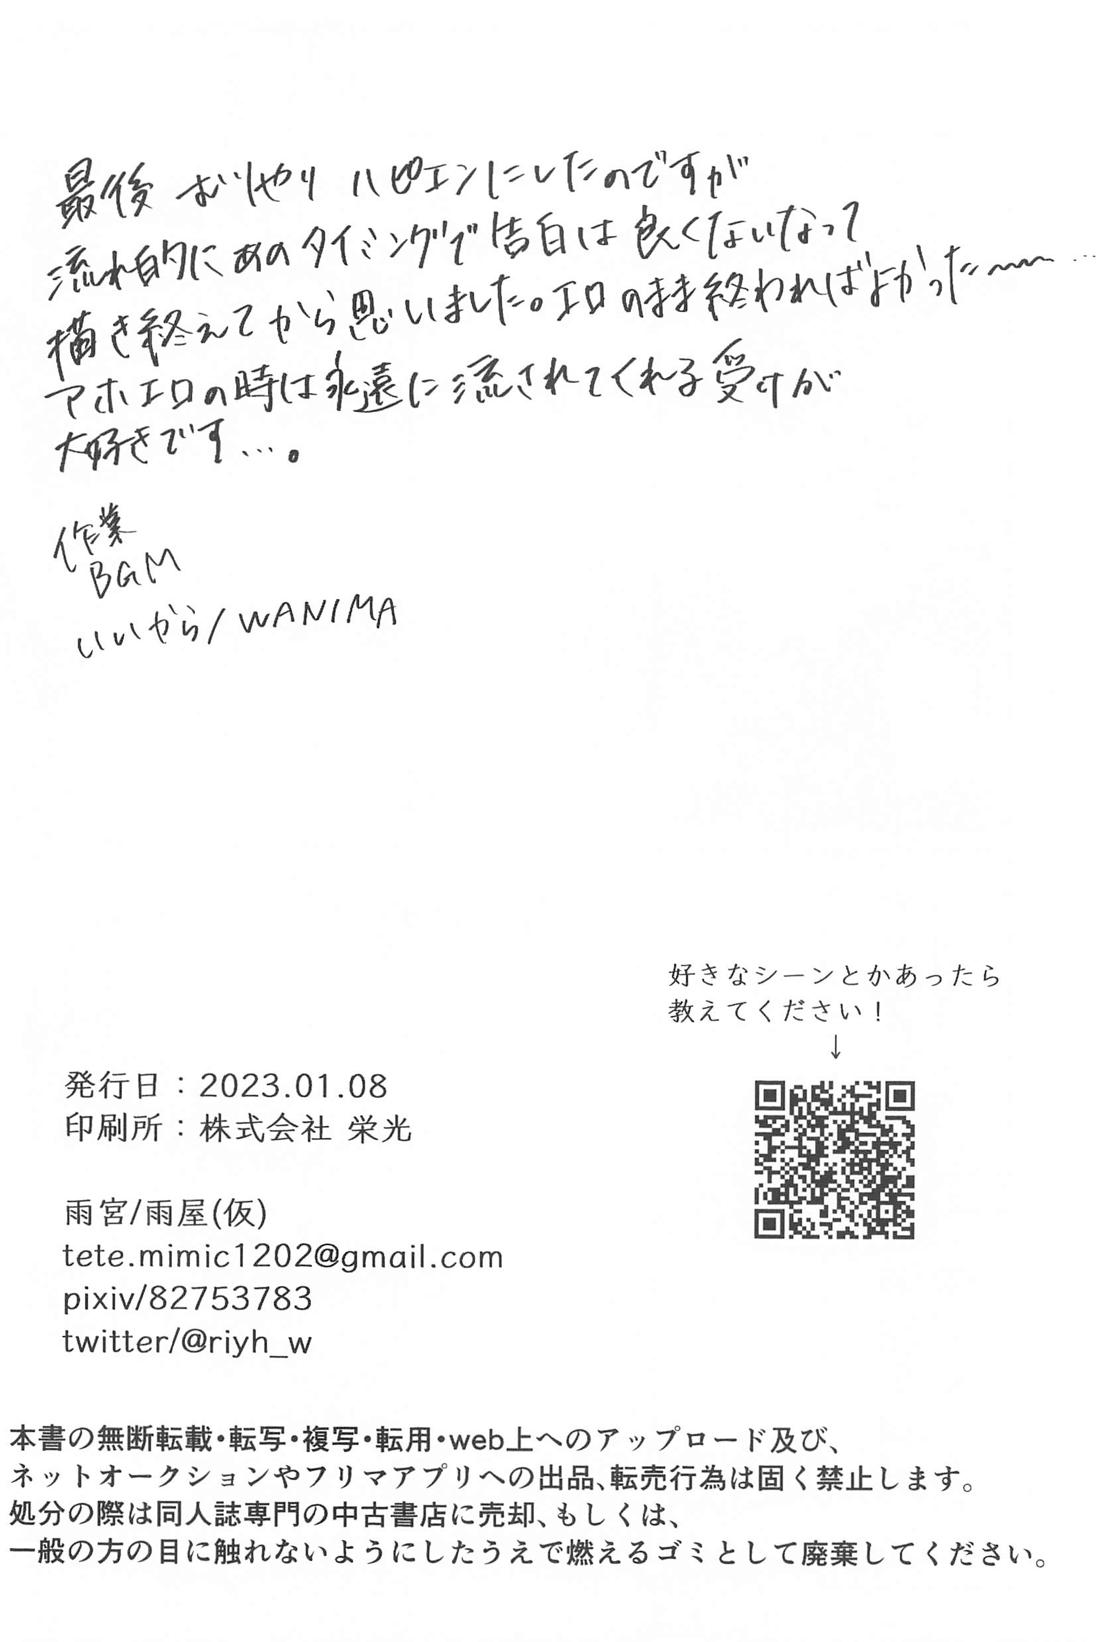 最後 むりやり ハピエンにしたのですが
流れ的にあのタイミングで告白は良くないなって
描き終えてから思いました。エロのまま終わればよかった〜〜…
アホエロの時は永遠に流されてくれる受けが
大好きです…。
作業
BGM
いいから/WANIMA
好きなシーンとかあったら
教えてください!
↓
発行日：2023.01.08
印刷所：株式会社 栄光
雨宮/雨屋(仮)
tete.mimic1202@gmail.com
pixiv/82753783
twitter/@riyh_w
本書の無断転載・転写・複写・転用・web上へのアップロード及び、
ネットオークションやフリマアプリへの出品、転売行為は固く禁止します。
処分の際は同人誌専門の中古書店に売却、もしくは、
一般の方の目に触れないようにしたうえで燃えるゴミとして廃棄してください。